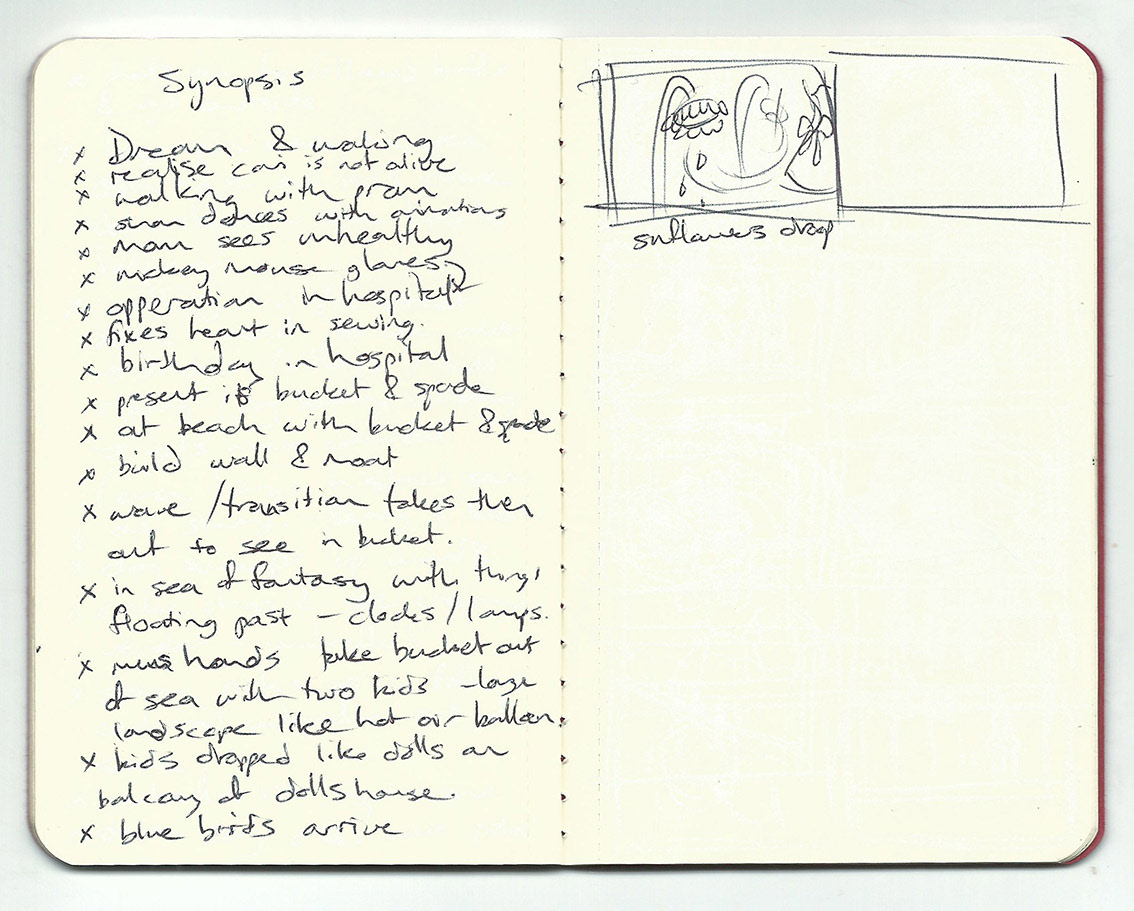 Synopsis
x Dream & waking
x realise cars is not alive
x walking with pram
x dances with animations
x mom sees unhealthy
x mickey mouse gloves?
x opperation in hospital?
x fixes heart in sewing.
x birthday in hospital
x present is bucket & spade
x at beach with bucket & spade
x build wall & moat
x wave / transition takes then
out to see in bucket.
x in sea of fantasy with things
floating past - clocks / lamps.
x hands take bucket out
of sea with two kids - large
landscape like hot air balloon.
x kids dropped like dolls on
balcony of dolls house.
x blue birds arrive
sunflowers drop